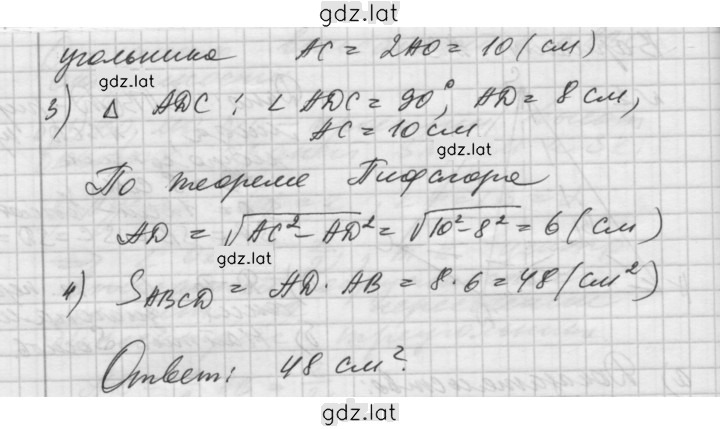 gdz.lat
угольника AC = 2AO = 10 (см)
gdz.lat
3) Δ ADC : ∠ ADC = 90°, AD = 8 см,
AC = 10 см
gdz.lat
По теореме Пифагора
AD = √AC² - AD² = √10² - 8² = 6 (см)
gdz.lat
4) S ABCD = AD · AB = 8 · 6 = 48 (см²)
Ответ: 48 см².
gdz.lat